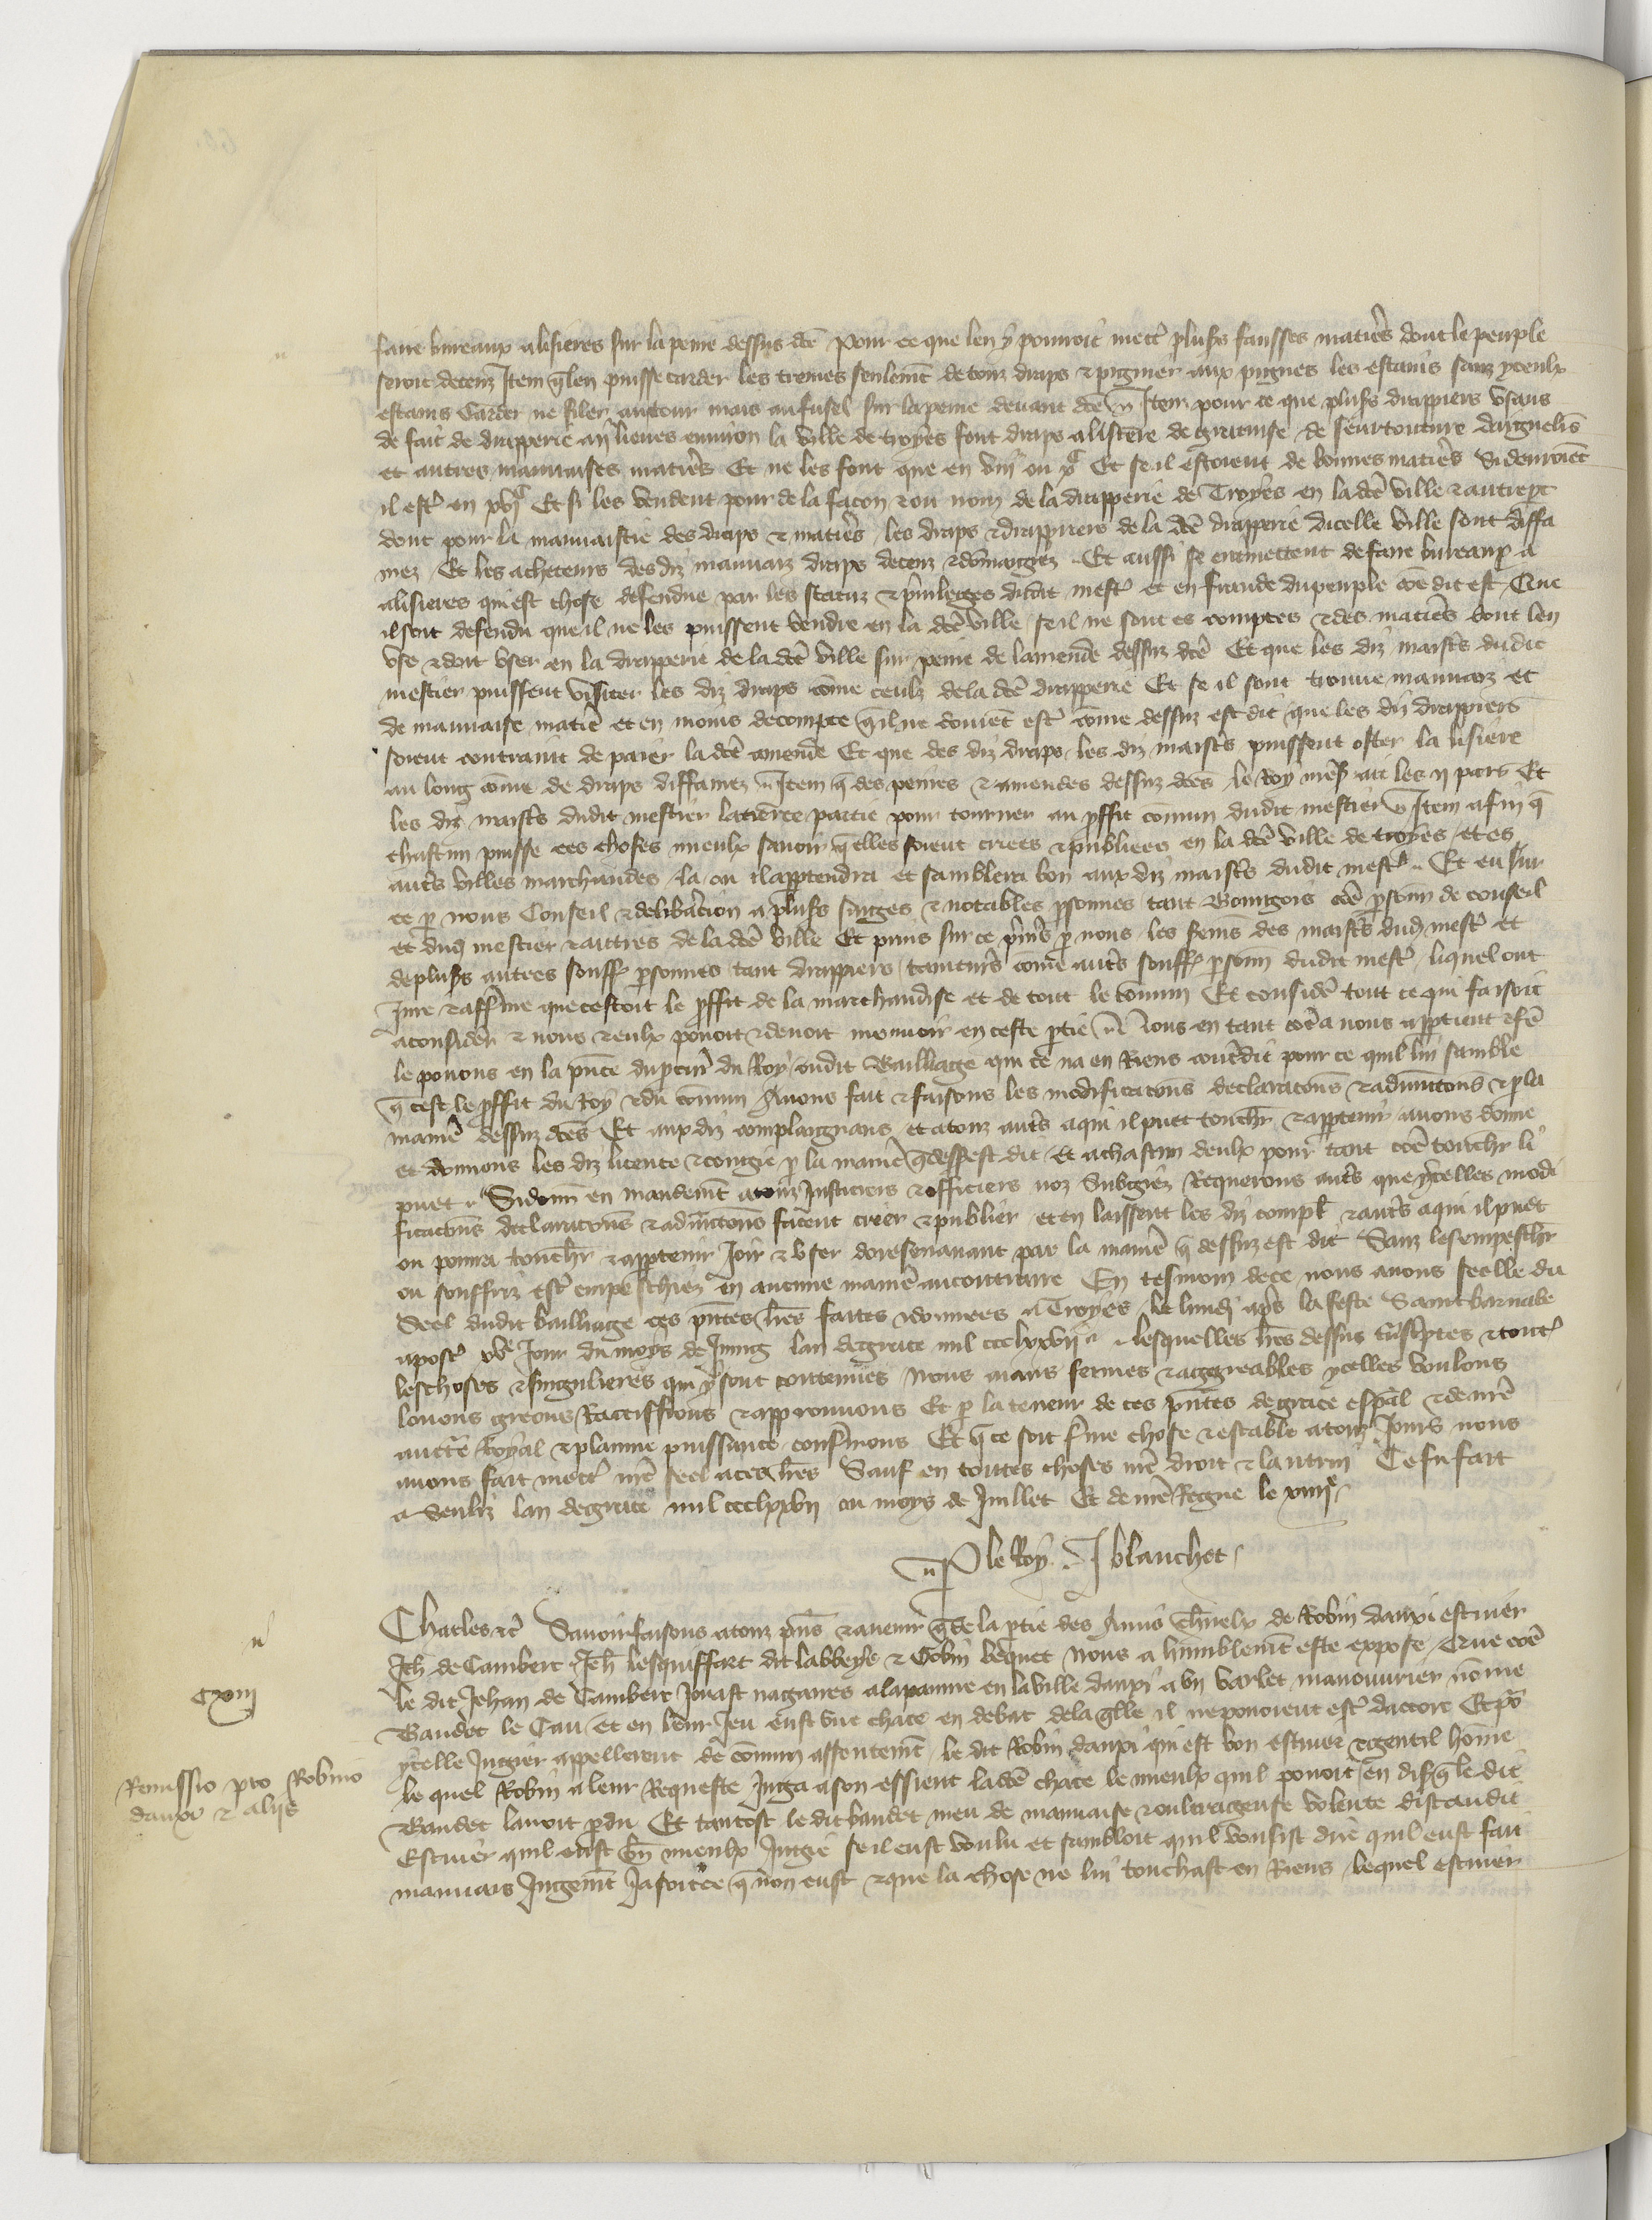 faire bureaux a lisieres sur la peine dessus dcē Pour ce que len y pourroit mettr plusrs fausses matieres dont le peuple
seroit deceuz Item q̄ len puisse carder les tremes seulemēt de touz draps & pignier aux pignes les estains sanz yceulx
estains carder ne filer au tour mais au fusel sur la peine devant dcē Item pour ce que plusrs drappiers usans
de fait de drapperie a lieues environ la ville de troyes font draps a listere de gratuise de seurtonture daignelis
et autres mauvaises matiers Et ne les font que en viij ou x Et se il estoient de bonnes matiers Si devroiēt
il estr en Et si les vendent pour de la facon & ou nom de la drapperie de Troyes en la dcē ville & autrept
dont pour la mauvaistie des draps & matiers les draps & drappiers de la dcē drapperie dicelle ville sont diffa
mez Et les acheteurs des diz mauvaiz draps deceuz & dōmagez Et aussi se entremettent de faire bureaux a
a lisieres qui est chose defendue par les statuz & privileges dudit mestr et en fraude du peuple cōē dit est Que
il soit defendu que il ne les puissent vendre en la dcē ville se il ne sont es comptes & des matiers dont len
use & doit user en la drapperie de la dcē ville sur peine de lamende dessuz dcē Et que les diz maistrs dudit
mestier puissent visiter les diz draps cōme ceulz de la dcē drapperie Et se il sont trouve mauvaiz et
de mauvaise matiē et en moins de compte q̄ il ne doivēt estr cōme dessuz est dit que les diz drappiers
soient contraint de paier la dcē amende Et que des diz draps les diz maistrs puissent oster la lisiere
au long cōme de draps diffamez Item q̄ des peines & amendes dessuz dcēs le Roy nrēs ait les ij pars Et
les diz maistrs dudit mestier la tierce partie pour tourner au pffit cōmun dudit mestier Item afin q̄
chascun puisse ces choses mieulx savoir q̄lles soient criees & publiees en la dcē ville de troyes et es
autrs villes marchandes la ou il apptendra et samblera bon aux diz maistrs dudit mestr Et eu sur
ce p nous Conseil & deliberacion a plusrs saiges & notables psonnes tant Bourgois cōē psonn de conseil
et dud mestier & autres de la dcē ville Et prins sur ce p nous les sermēs des maistrs dud mestr et
de plusrs autres souff psonnes tant drappiers tainturs cōme autrs souff psonn dudit mestr liquel ont
Jure & afferme que cestoit le pffit de la marchandise et de tout le cōmun Et considē tout ce qui faisoit
a considerer & nous & eulx povoit & devoit mouvoir en ceste ptie Nous en tant cōē a nous apptient & fē
le povons en la pn̄ce du pcur du Roy oudit Bailliage qui ce na en Riens contredit pour ce quil lui samble
q̄ cest le pffit du Roy & du cōmun Avons fait & faisons les modificacions declaracions & adiunctons & p la
maniē dessuz dcēs Et aux diz complaignans et a touz autrs a qui il puet touchr & apptenir avons donne
et donnons les diz licence & congie p la maniē q̄ dessus est dit Et a chascun deulx pour tant cōē touchr li
puet Si donn en mandemēt a touz Justiciers & officiers noz Subgiez Requerons autrs que ycelles modi
ficacions declaracions & adiunctons facent crier & publier et en laissent les diz compl & autrs a qui il puet
ou pourra touchr & apptenir Joir & user doresenavant par la maniē q̄ dessuz est dit Sanz les empeschr
ou souffrir estr empeschiez en aucune maniē au contraire En tesmoin de ce nous avons seelle du
Seel dudit bailliage ces pn̄tes lr̄es faites & donnees a Troyes le lundi aprs la feste Saint barnabe
apostr xve Jour du moys de Juing lan de grace mil ccclxxvij lesquelles lr̄es dessus transcriptes & toutes
les choses & singulieres qui y sont contenues Nous aians fermes & aggreables ycelles voulons
louons greons Ratiffions & approuvons Et p la teneur de ces pn̄tes de grace espāl & de nrē
auctē Royal & plainne puissance confermons Et q̄ ce soit ferme chose & estable a touz Jours nous
avons fait mettr nrē seel a ces lr̄es Sauf en toutes choses nrē droit & lautrui Ce fu fait
a Senliz lan de grace mil ccclxxvij ou moys de Juillet Et de nrē Regne le xiiije
P le Roy J blanchet
Charles &c Savoir faisons a touz pn̄s & avenir q̄ de la ptie des Amis charnelx de Robin dauxi escuier
Jeh de Cambert Jeh lesquiffart dit labbeye & Gobin bequet Nous a humblemēt este expose Que cōē
le dit Jehan de Cambert Jouast nagaires a la paume en la ville dauxi a un varlet manouvrier nōme
Baudet le Cau et en leur Jeu eust une chace en debat de la q̄lle il ne povoient estr daccort Et po
ycelle Jugier appellerent de cōmun assentemēt le dit Robin dauxi qui est bon escuier & gentil hōme
le quel Robin a leur Requeste Juga a son essient la dcē chace le mieulx quil povoit en dis q̄ le dit
Baudet lavoit pdu Et tantost le dit baudet meu de mauvaise & oultrageuse volente dist audit
Escuier quil eust bn̄ mieulx Jugie se il eust voulu et sambloit quil vousist dire quil eust fait
mauvais Jugemēt Ja soit ce q̄ non eust & que la chose ne lui touchast en Riens lequel escuier
cxiij
Remissio pro Robino
dauxi & aliis